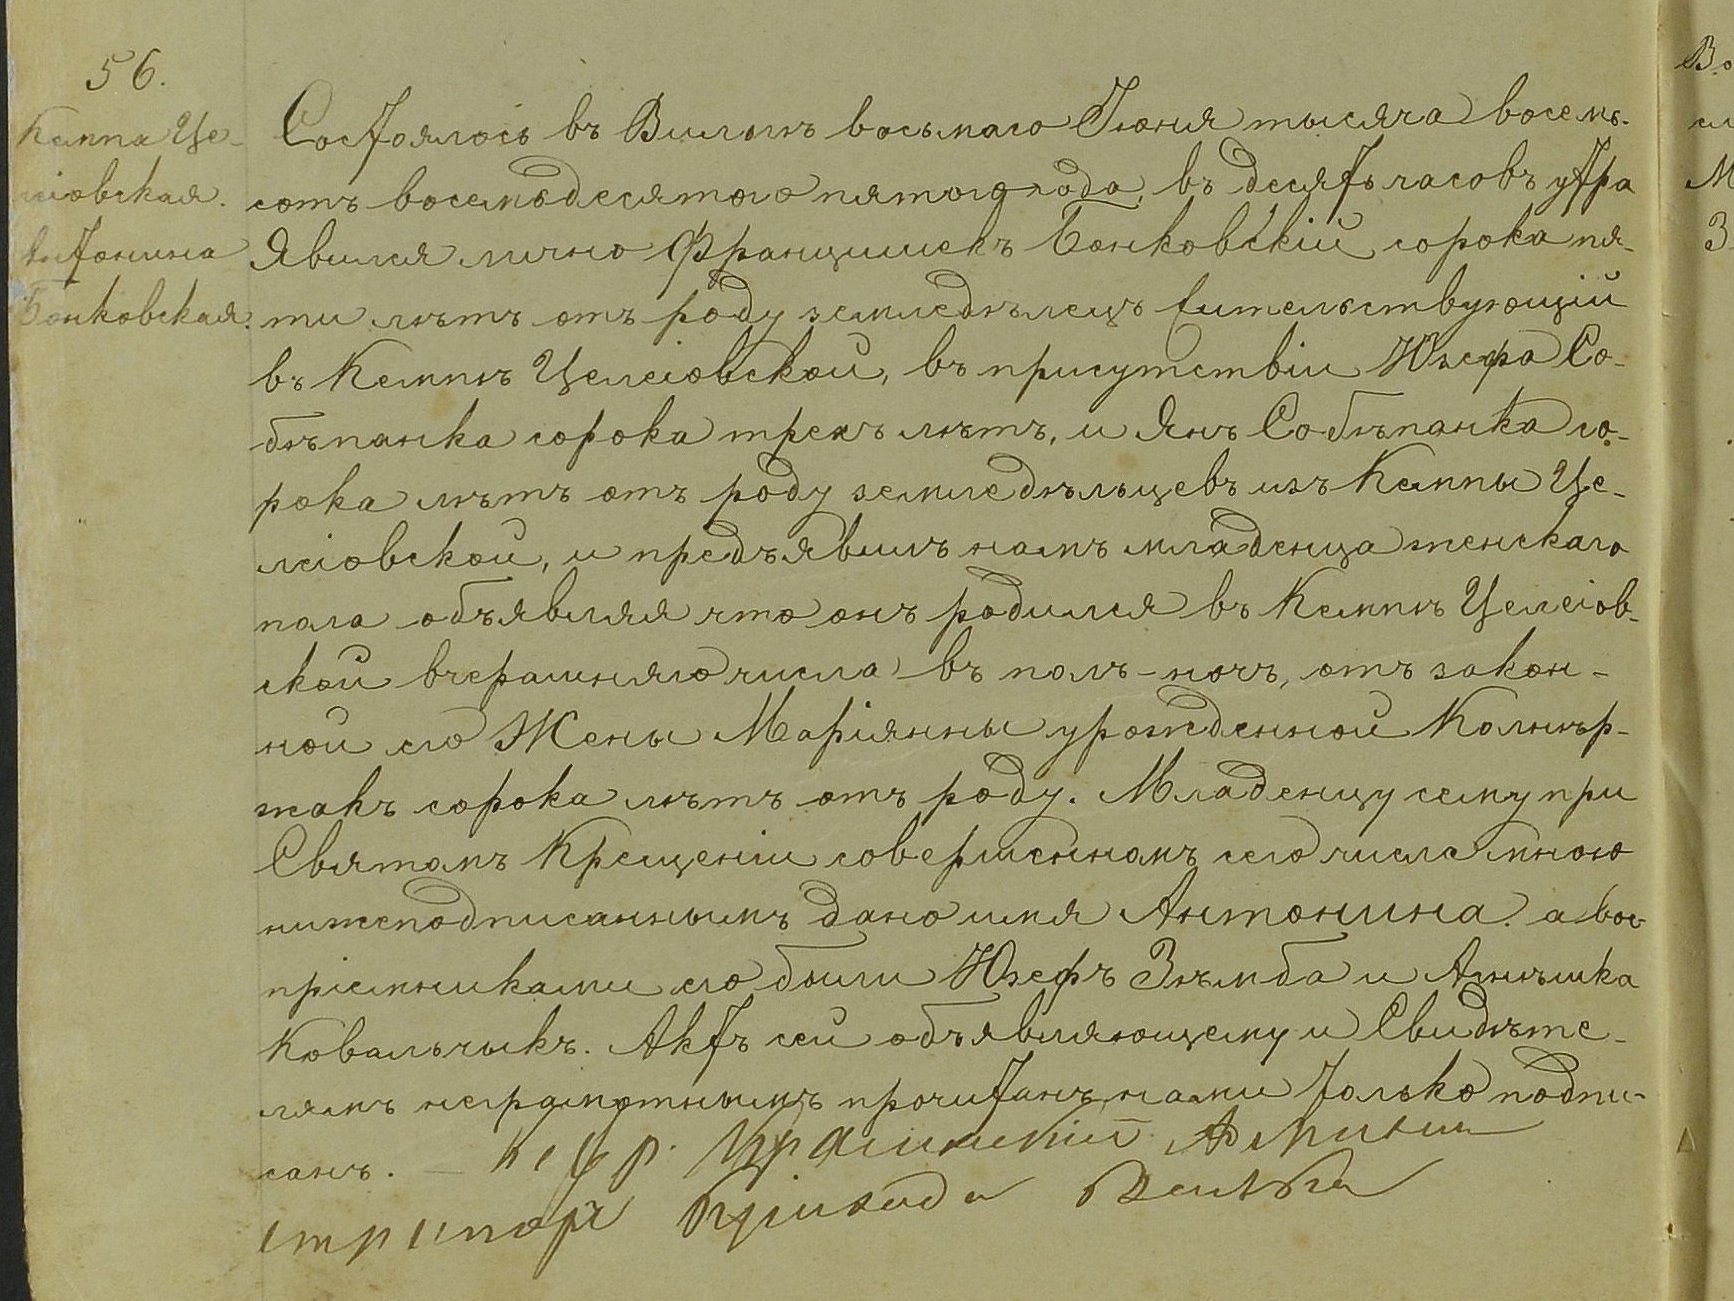 56.
Кемпа Це-
леіовская.
Антонина
Бонковская.
Состоялось въ Вильгѣ восьмаго Іюня тысяча восемь-
сотъ восемьдесятого пятого года, въ десять часовъ утра
Явился лично Францишекъ Бонковскій сорока пя-
ти лѣтъ отъ роду земледѣлецъ жительствующій
въ Кемпѣ Целеіовской, въ присутствіи Юзефа Со-
бѣпанка сорока трехъ лѣтъ, и Янъ Собѣпанка со-
рока лѣтъ отъ роду земледѣльцевъ изъ Кемпы Це-
леіовской, и предъявилъ намъ младенца женскаго
пола объявляя что онъ родился въ Кемпѣ Целеіов-
ской вчерашняго числа въ полъ-ночъ, отъ закон-
ной его Жены Маріянны урожденной Колнѣр-
жакъ сорока лѣтъ отъ роду. Младенцу сему при
Святомъ Крещеніи совершенномъ сего числа мною
нижеподписаннымъ дано имя Антонина. а вос-
пріемниками его были Юзефъ Зѣмба и Агнѣшка
Ковальчыкъ. Актъ сей объявляющему и Свидѣте-
лямъ неграмотнымъ прочитанъ нами только подпи-
санъ. —